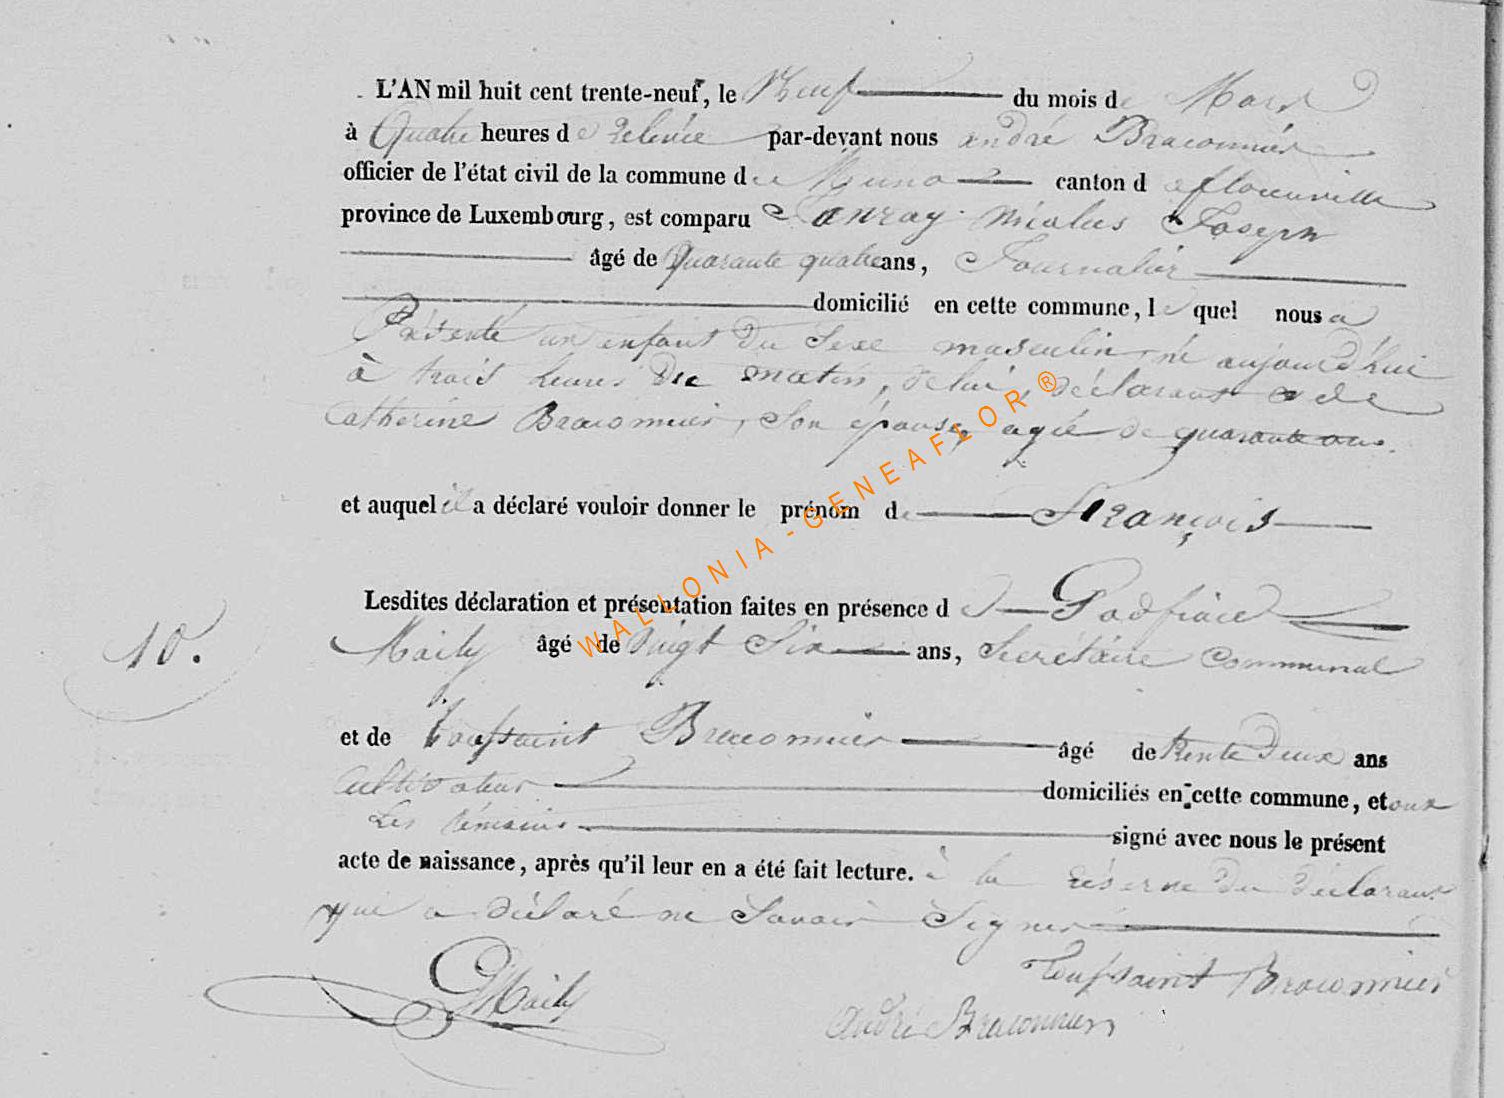 L'AN mil huit cent trente-neuf, le Neuf du mois de Mars
à Quatre heures de relevée par-devant nous andré Braconnier
officier de l'état civil de la commune de Muno canton de florenville
province de Luxembourg, est comparu Lanray Nicolas Joseph
âgé de Quarante quatre ans, Journalier
domicilié en cette commune, lequel nous a
Présenté un enfant du Sexe masculin, né aujourd'hui
à trois heures du matin, de lui, déclarant et de
Catherine Braconnier, Son épouse, agée de quarante ans.
et auquel il a déclaré vouloir donner le prénom de François
Lesdites déclaration et présentation faites en présence de Godfriaux
10.
Maily âgé de Vingt Six ans, Secrétaire Communal
et de Toussaint Braconnier âgé de trente deux ans
Cultivateur domiciliés en cette commune, et ont
Les témoins signé avec nous le présent
acte de naissance, après qu'il leur en a été fait lecture. à la réserve du déclarant
qui a déclaré ne Savoir Signer
Toussaint Braconnier
GMaily
André Braconnier
WALLONIA-GENEAFLOR®